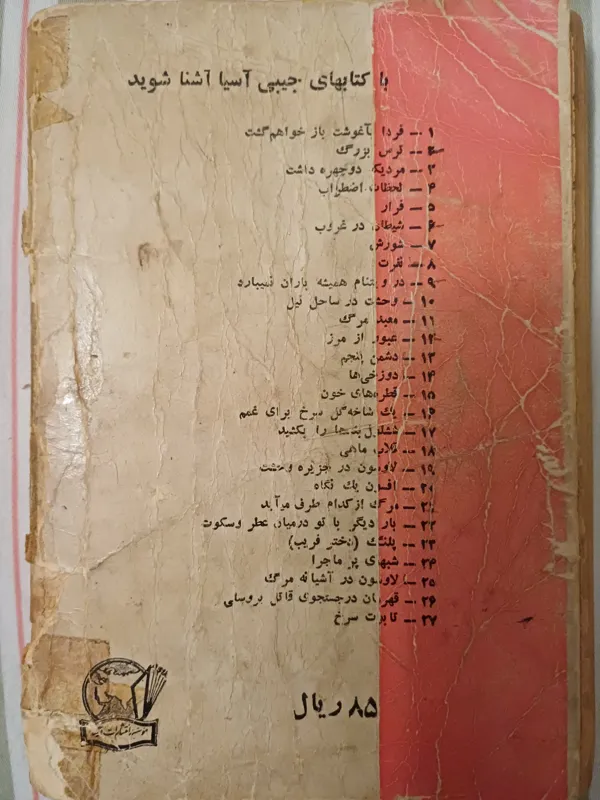 با کتابهای جیبی آسیا آشنا شوید
۱ – فردا بآغوشت باز خواهم گشت
۲ – ترس بزرگ
۳ – مردیکه دوچهره داشت
۴ – لحظات اضطراب
۵ – فرار
۶ – شیطان در غروب
۷ – شورش
۸ – نفرت
۹ – در ویتنام همیشه باران نمیبارد
۱۰ – وحشت در ساحل نیل
۱۱ – معبد مرگ
۱۲ – عبور از مرز
۱۳ – دشمن پنجم
۱۴ – دوزخی‌ها
۱۵ – قطره‌های خون
۱۶ – یک شاخه گل سرخ برای غمم
۱۷ – ششلول بندها را بکشید
۱۸ – قلاب ماهی
۱۹ – لاوسون در جزیره وحشت
۲۰ – افسون یک نگاه
۲۱ – مرگ از کدام طرف میآید
۲۲ – بار دیگر با تو درمیان عطر وسکوت
۲۳ – پلنگ (دختر فریب)
۲۴ – شبهای پر ماجرا
۲۵ – لاوسون در آشیانه مرگ
۲۶ – قهرمان درجستجوی قاتل بروسلی
۲۷ – تابوت سرخ
۸۵ ریال
موسسه انتشارات آسیا